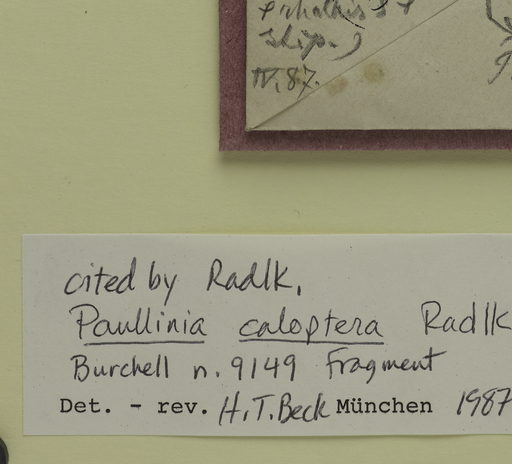 stip.)
IV.87.
cited by Radlk,
Paullinia caloptera Radlk
Burchell n. 9149 Fragment
Det. - rev. H.T.Beck München 1987